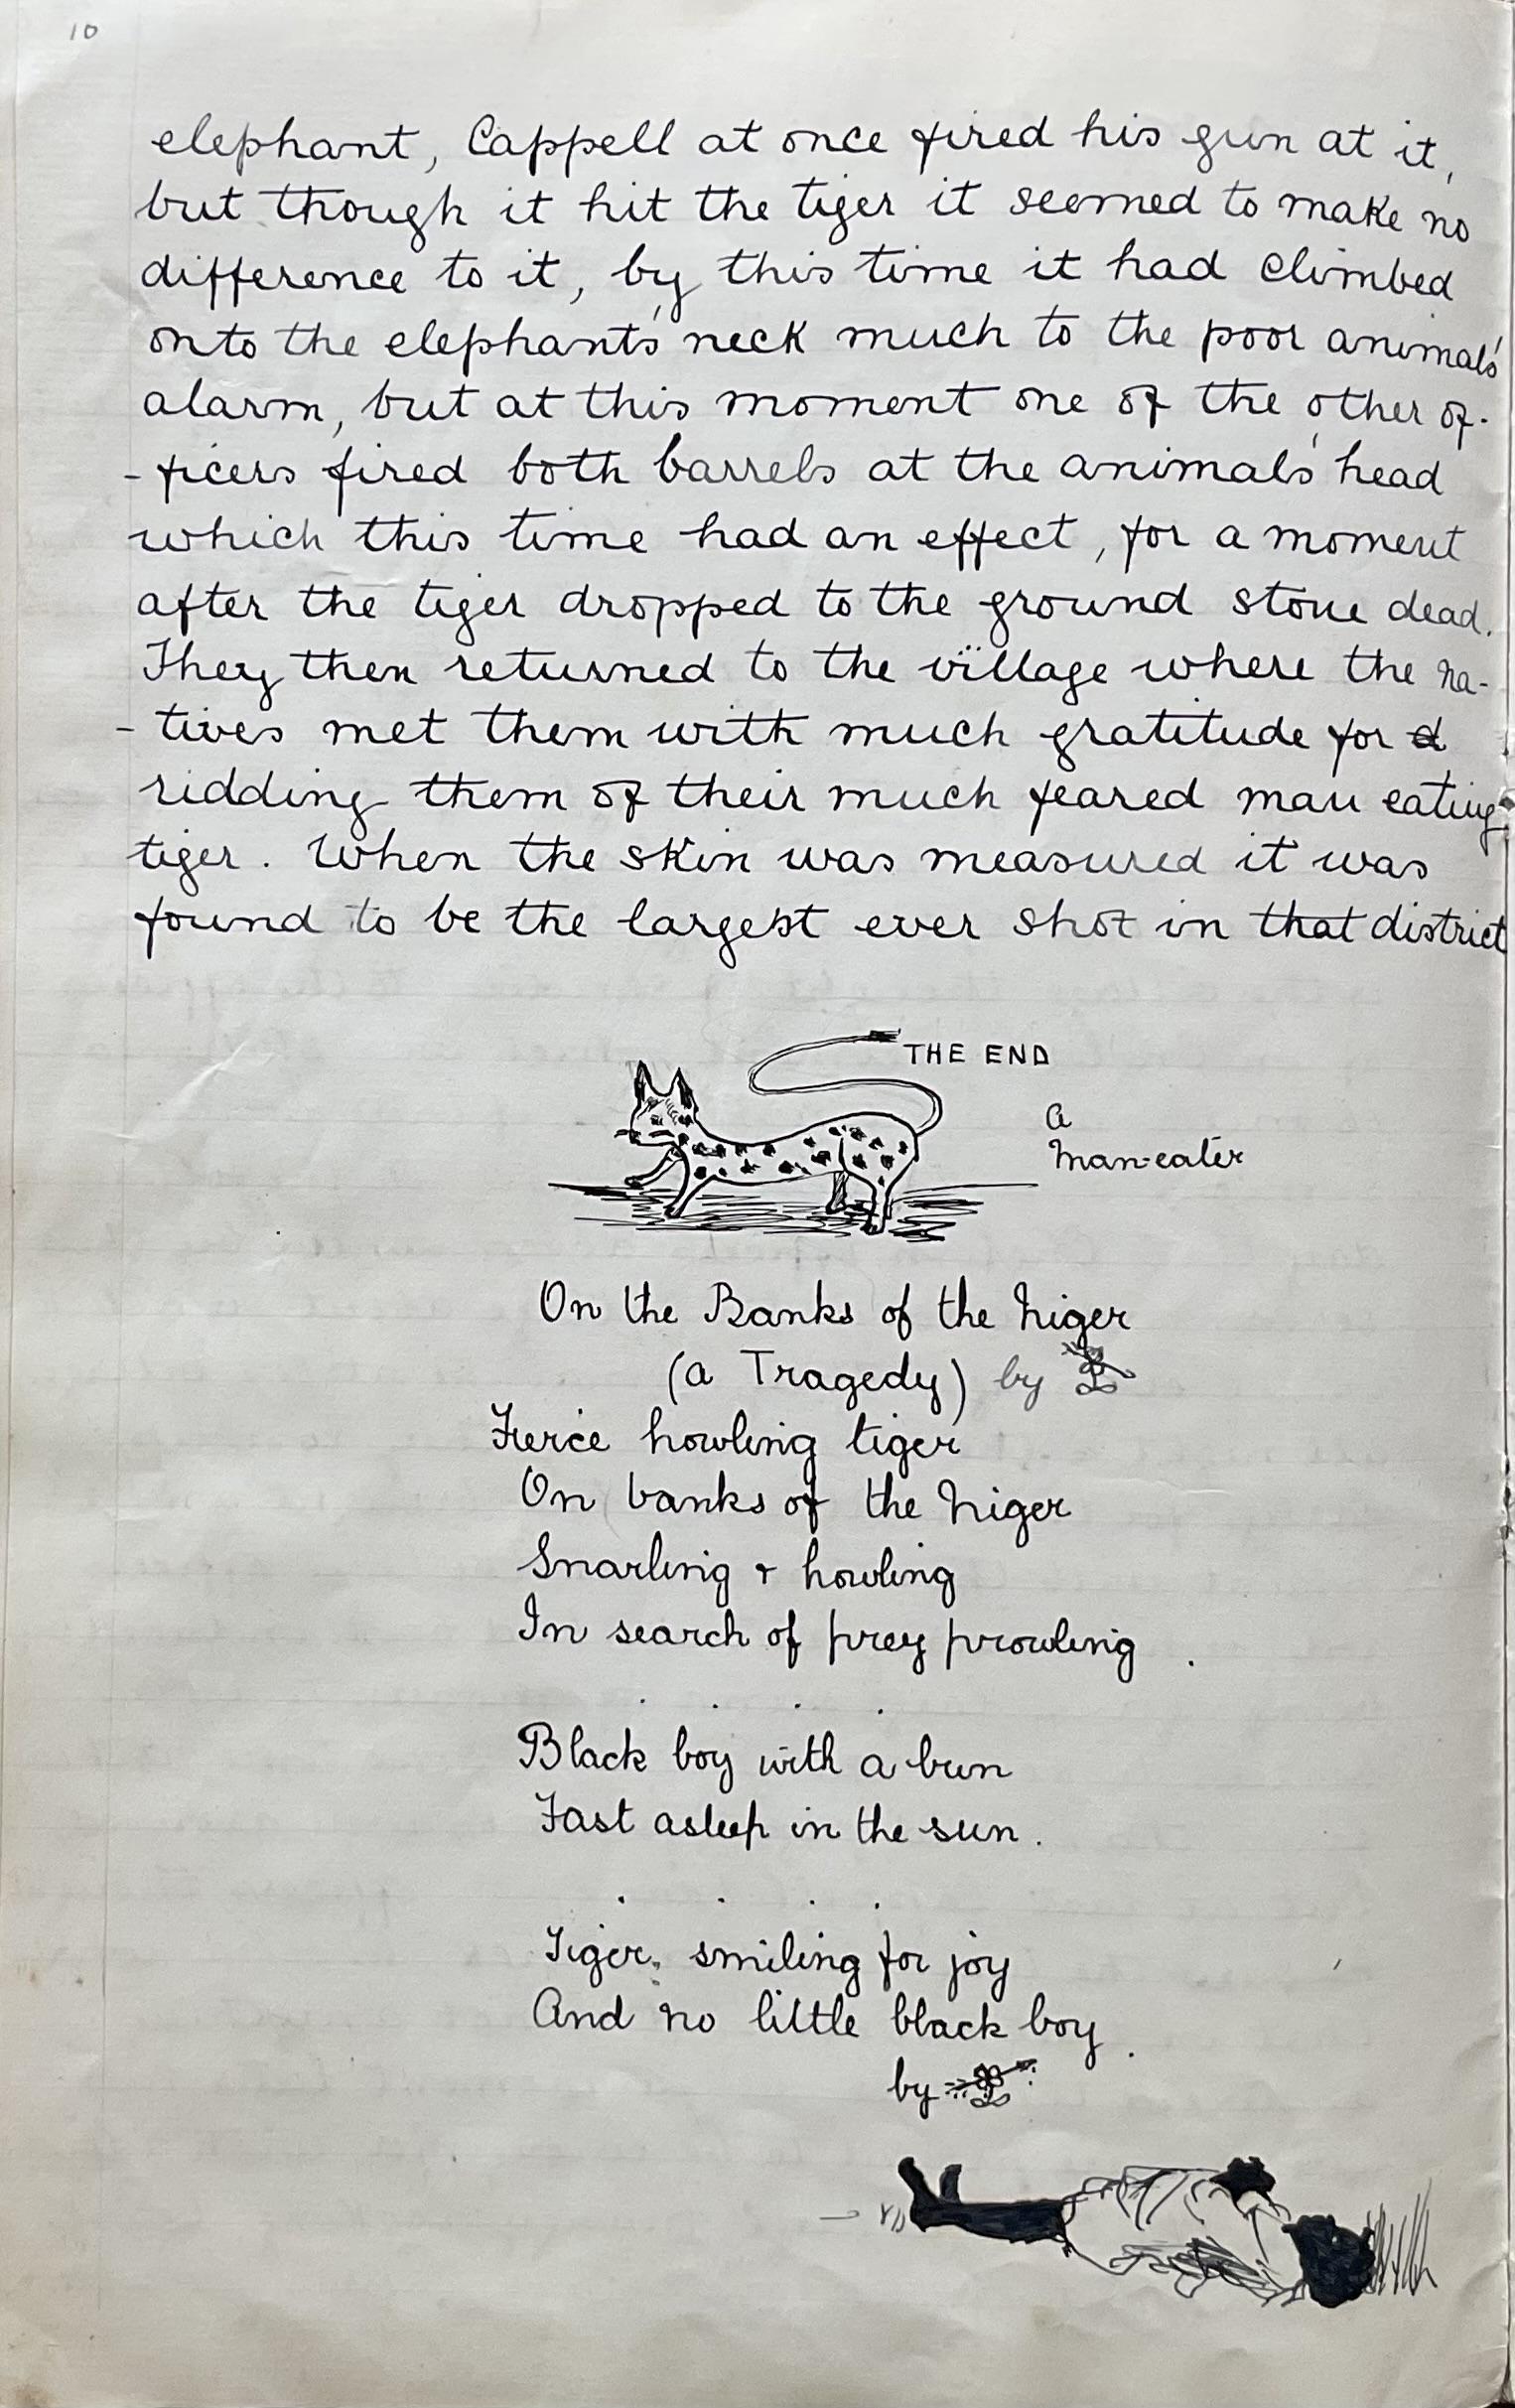 10
elephant, Cappell at once fired his gun at it,
but though it hit the tiger it seemed to make no
difference to it, by this time it had climbed
onto the elephant's neck much to the poor animal's
alarm, but at this moment one of the other of-
-ficers fired both barrels at the animal's head
which this time had an effect, for a moment
after the tiger dropped to the ground stone dead.
They then returned to the village where the na-
-tives met them with much gratitude for
ridding them of their much feared man eating
tiger. When the skin was measured it was
found to be the largest ever shot in that district
THE END
A
man-eater
On the Banks of the Niger
(A Tragedy) by
Fierce howling tiger
On banks of the Niger
Snarling & howling
In search of prey prowling.
. . . .
Black boy with a bun
Fast asleep in the sun.
. . . .
Tiger, smiling for joy
And no little black boy.
by